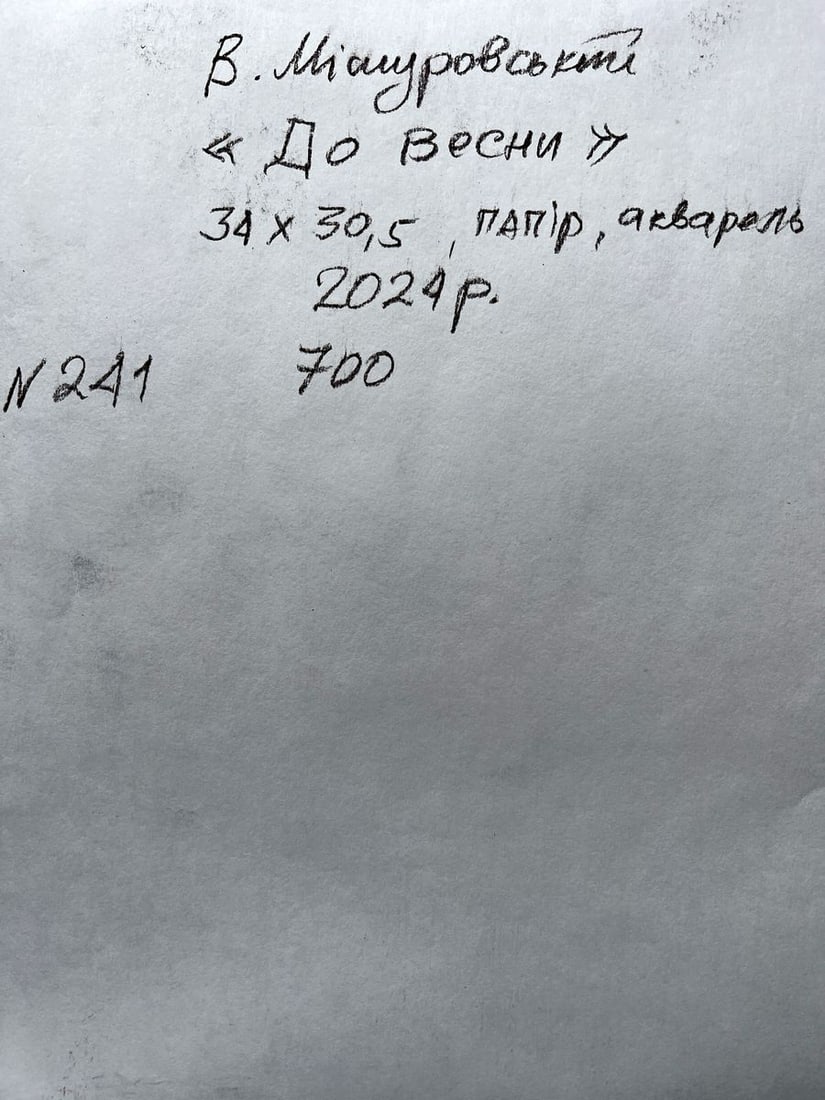 В. Мішуровський
« До весни »
34 х 30,5 , папір, акварель
2024 р.
N 241 700